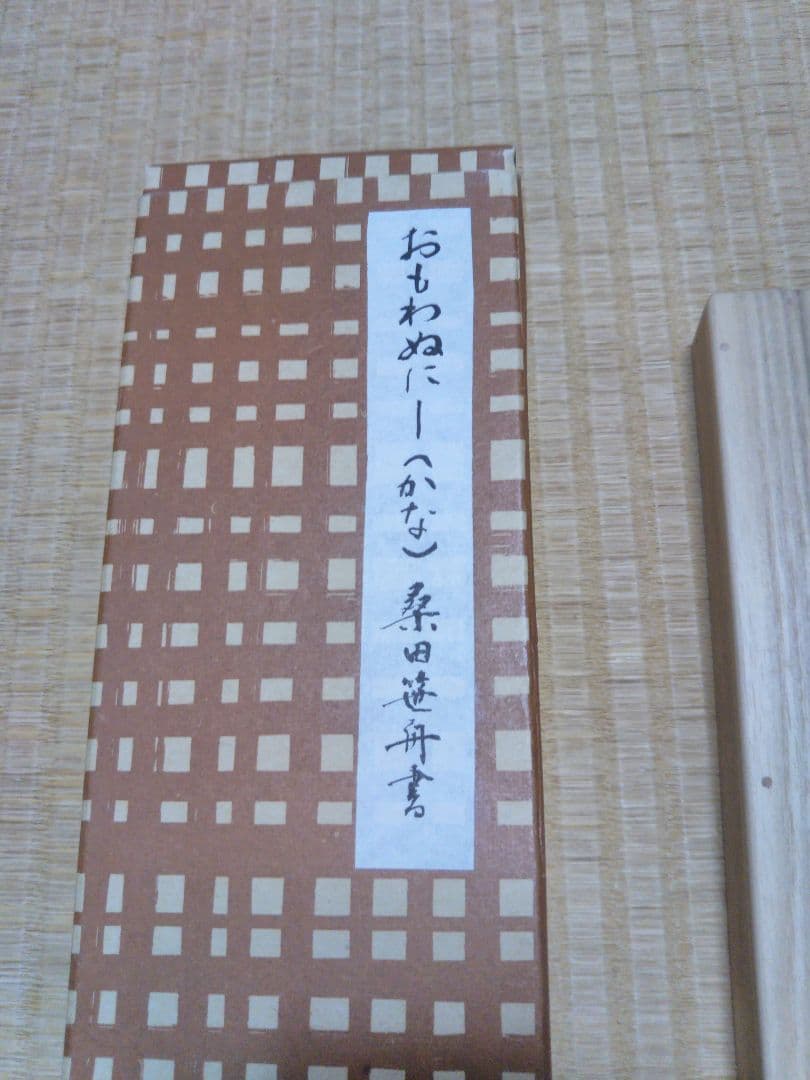 おもわぬにー（かな）桑田笹舟書